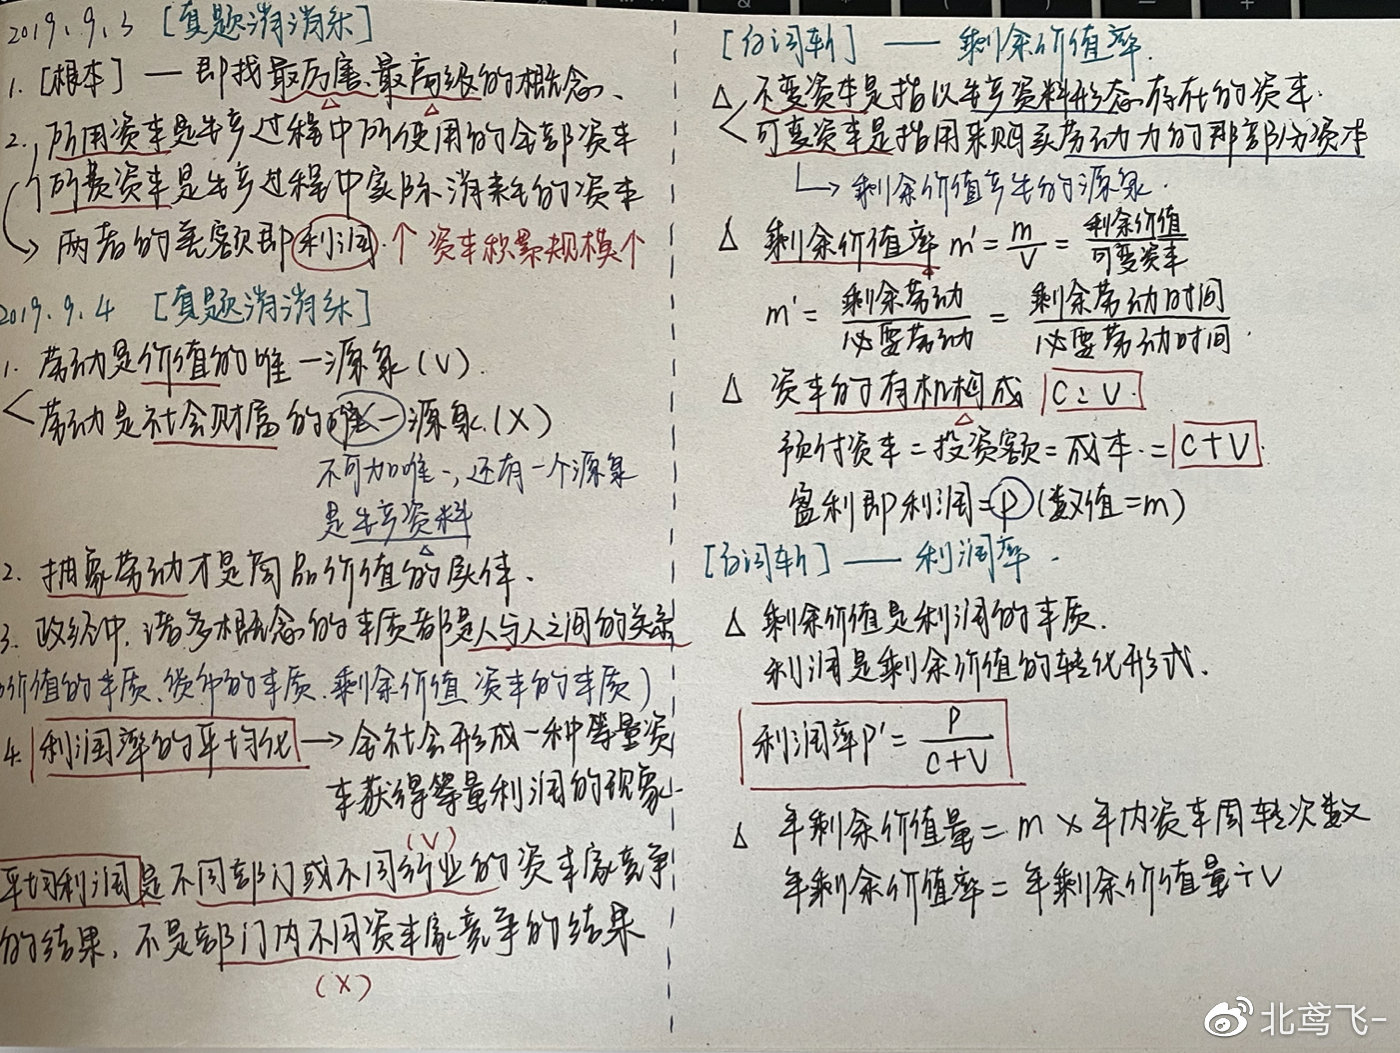 2019.9.3 [真题消消乐]
1. [根本] — 即找最厉害、最高级的概念、
2. 所用资本是生产过程中所使用的全部资本
所费资本是生产过程中实际消耗的资本
→ 两者的差额即利润.↑ 资本积累规模↑
2019.9.4 [真题消消乐]
1. 劳动是价值的唯一源泉(V).
< 劳动是社会财富的唯一源泉.(X)
不可加唯一,还有一个源泉
是生产资料
2. 抽象劳动才是商品价值的实体.
3. 政经中,诸多概念的本质都是人与人之间的关系
价值的本质、货币的本质.剩余价值、资本的本质)
4. 利润率的平均化 → 全社会形成一种等量资
本获得等量利润的现象.
(V)
平均利润是不同部门或不同行业的资本家竞争
的结果,不是部门内不同资本家竞争的结果
(X)
[白词斩] —— 剩余价值率.
△ 不变资本是指以生产资料形态存在的资本.
< 可变资本是指用来购买劳动力的那部分资本
↳ 剩余价值产生的源泉.
△ 剩余价值率 m' = m/V = 剩余价值/可变资本
m' = 剩余劳动/必要劳动 = 剩余劳动时间/必要劳动时间.
△ 资本的有机构成 C:V.
预付资本=投资额=成本.=C+V.
盈利即利润=P(数值=m)
[白词斩] —— 利润率.
△ 剩余价值是利润的本质.
利润是剩余价值的转化形式.
利润率P' = P/C+V
△ 年剩余价值量= m × 年内资本周转次数
年剩余价值率= 年剩余价值量÷V
北鸢飞-